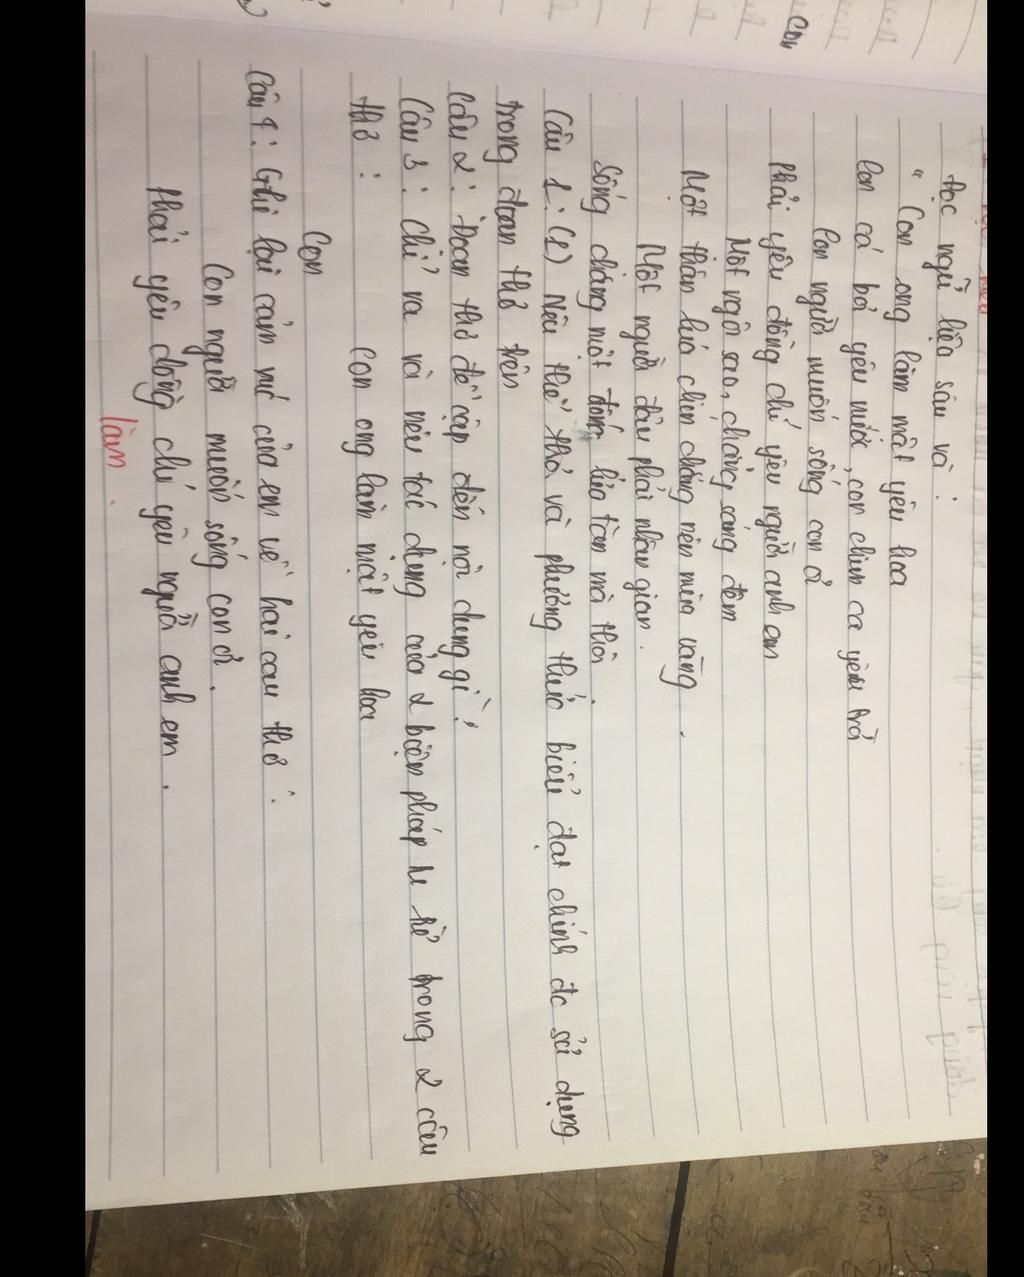 Đọc ngữ liệu sau và :
" Con ong làm mật yêu hoa
Con cá bơi yêu nước, con chim ca yêu trời
Con người muốn sống con ơi
Phải yêu đồng chí yêu người anh em
Một ngôi sao, chẳng sáng đêm
Một thân lúa chín chẳng nên mùa vàng.
Một người đâu phải nhân gian.
Sống chăng một đốm lửa tàn mà thôi
Câu 1: (1) Nêu thể thơ và phương thức biểu đạt chính đc sử dụng
trong đoạn thơ trên
Câu 2: Đoạn thơ đề cập đến nội dung gì?
Câu 3: Chỉ ra và nêu tác dụng của 2 biện pháp tu từ trong 2 câu
thơ : con ong làm mật yêu hoa
Con
Câu 4: Ghi lại cảm xúc của em về hai câu thơ :
Con người muốn sống con ơi.
Phải yêu đồng chí yêu người anh em.
làm.
con